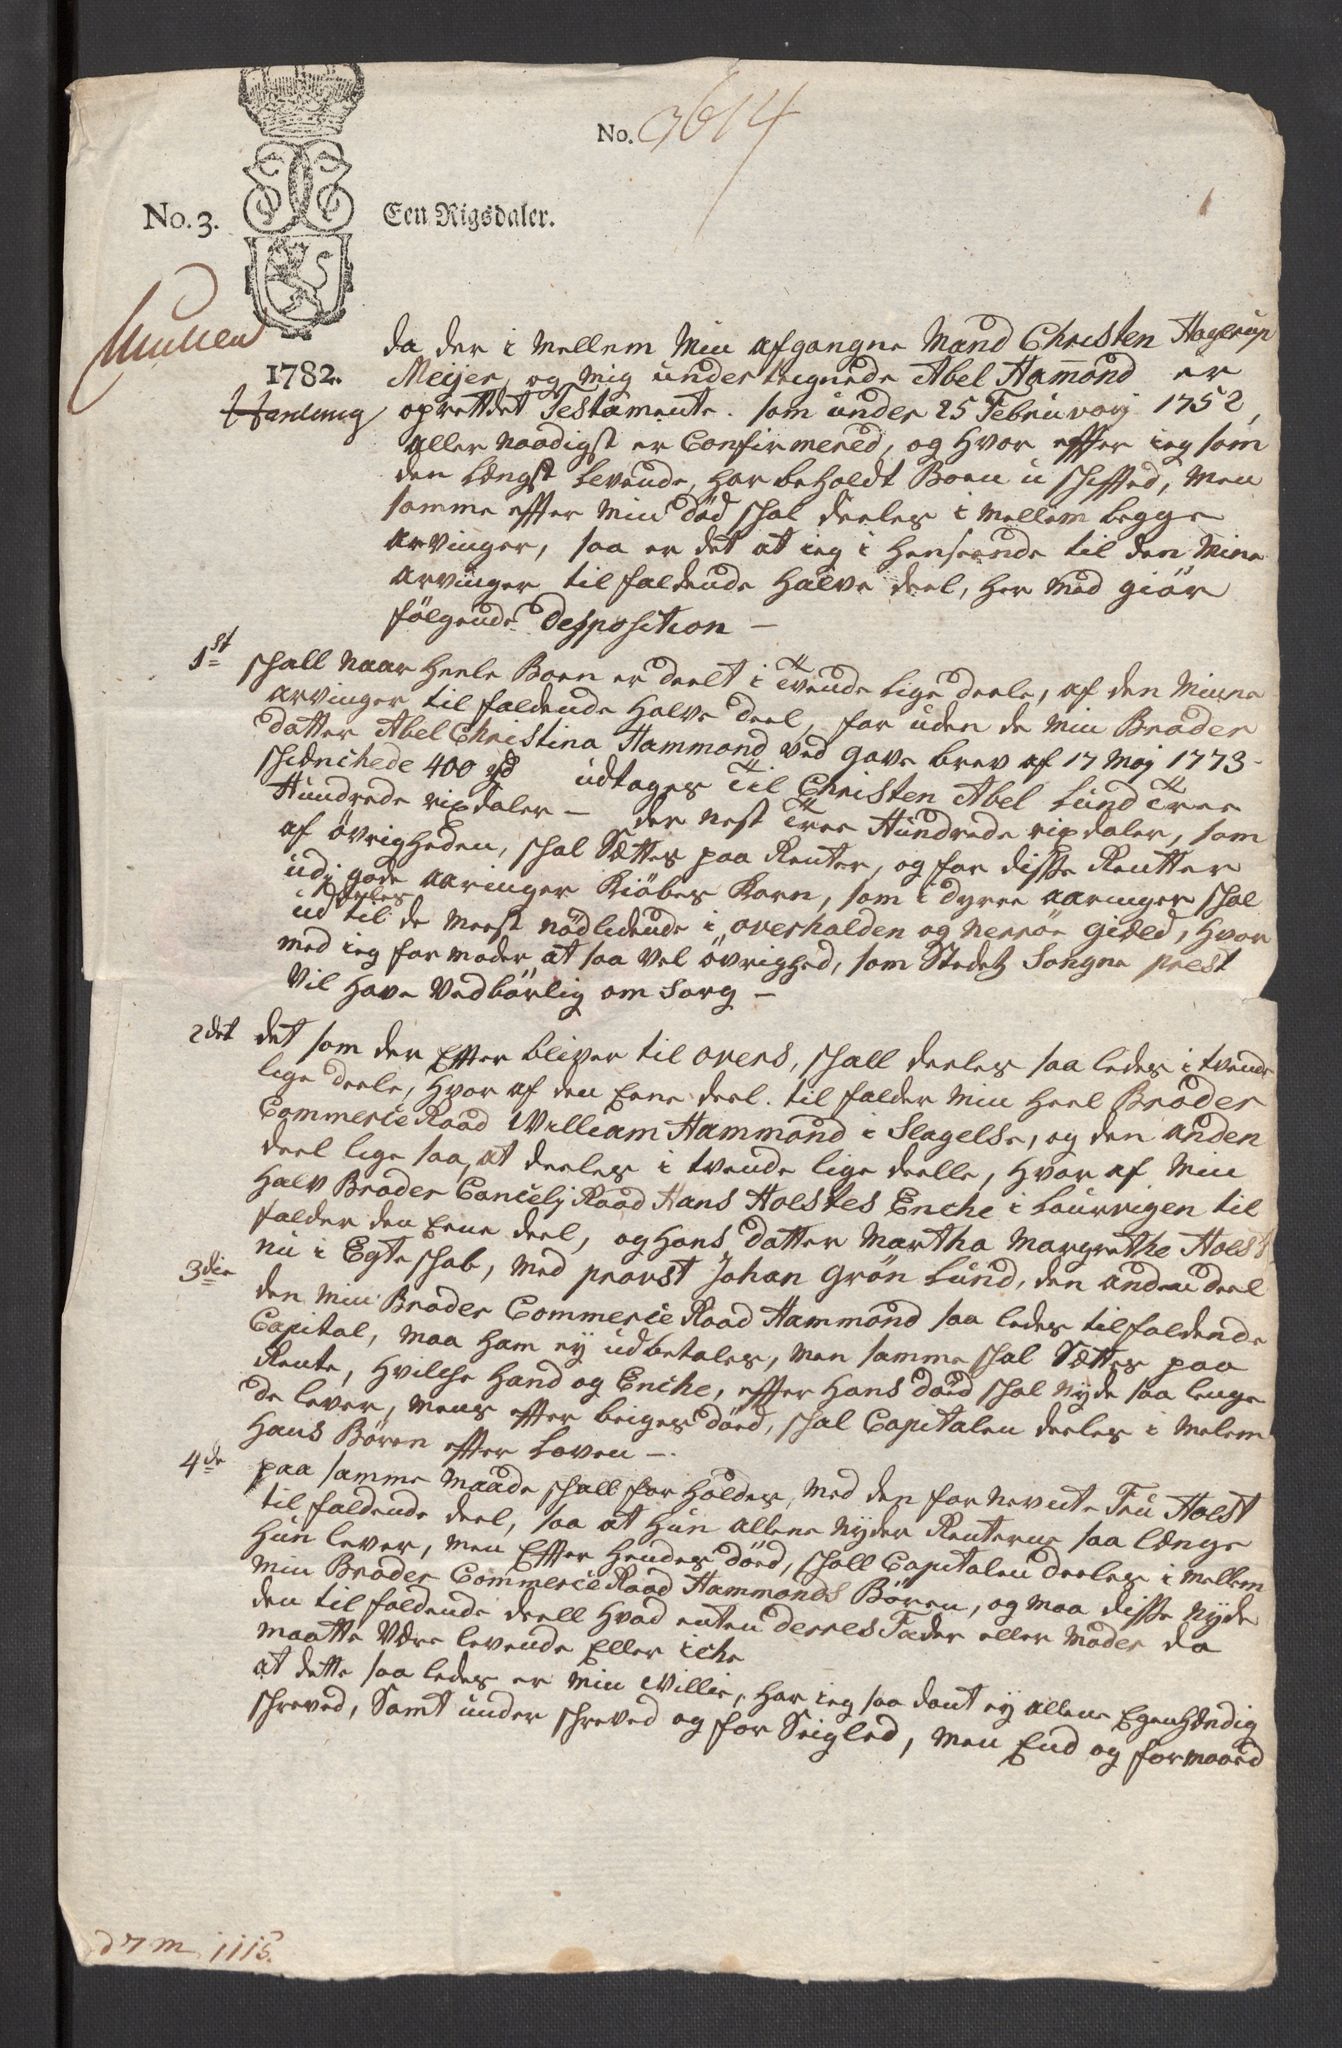 No. 3614
No. 3.
Een Rigsdaler.
1782.
da der i Mellem Min afgangne Mand Christen Hagerup
Meyer, og Mig under tegnede Abel Hamond er
oprettdet Testamente. som under 25 Februvarj 1752,
Aller Naadigst er Confirmered, og Hvor effter ieg som
den Længst Levende, har beholdt Boen u schifted, Men
samme effter Min död schal deeles i Mellem begge
Arvinger, saa er det at ieg i Henseende til den Mine
Arvinger tilfaldende Halve deel, Her Med giör
fölgende Dessposition —
1st schall Naar Heele Boen er deelt i Tvende Lige deele, af den Minne
Arvinger tilfaldende Halve deel, for uden de Min Broder
datter Abel Christina Hammond ved gave brev af 17 Maj 1773
schienchede 400 rd udtages Til Christen Abel Lund Tree
Hundrede rixdaler — der Nest Tree Hundrede rixdaler, som
af övrigheden, schal Sættes paa Renter, og for disse Rentter
udj gode Aaringer Kiöbes Korn, som i dyree Aaringer schal
deeles
ud til de Meest nödlidende i overhalden og Nerröe gield, Hvor
med ieg formoder at saa Vel övrighed, som Stedetz Sogne prest
Vil Have Vedbörlig om Sorg —
2det det som der Effter bliver til overs, schall deeles saa ledes i tvende
lige deele, Hvor af den Eene deel. til falder Min Heel Broder
Commercie Raad William Hammond i Slagelse, og den anden
deel lige saa, at deeles i tvende lige deelle, Hvor af Min
Halv Broder Cancelj Raad Hans Holstes Enche i Laurvigen til
falder den Eene deel, og Hans datter Martha Margrethe Holst
nu i Egteschab, Med provst Johan Grön Lund, den anden deel
3die den Min Broder Commercie Raad Hammond saa ledes tilfaldende
Capital, maa Ham ey udbetales, Men samme schal Sættes paa
Rente, Hvilche Hand og Enche, effter Hans död schal Nyde saa lenge
de lever, Mens effter beiges döed, schal Capitalen deeles i Melem
Hans Bören effter Loven —.
4de paa samme Maade schall for Holdes, Med den for Nevnte Fru Holst
tilfaldende deel, saa at Hun Allene Nyder Renterne saa længe
Hun lever, Men Effter Hendes döed, schall Capitalen deeles i Mellem
Min Broder Commercie Raad Hammonds Bören, og Maa disse Nyde
den tilfaldende deell Hvad enten derres Fader eller Moder da
Maatte Være levende Eller iche
at dette saa ledes er Min Villie, Har ieg saa dant ey Allene Egenhændig
schreved, Samt under schreved og for Seigled, Men End og formaaed